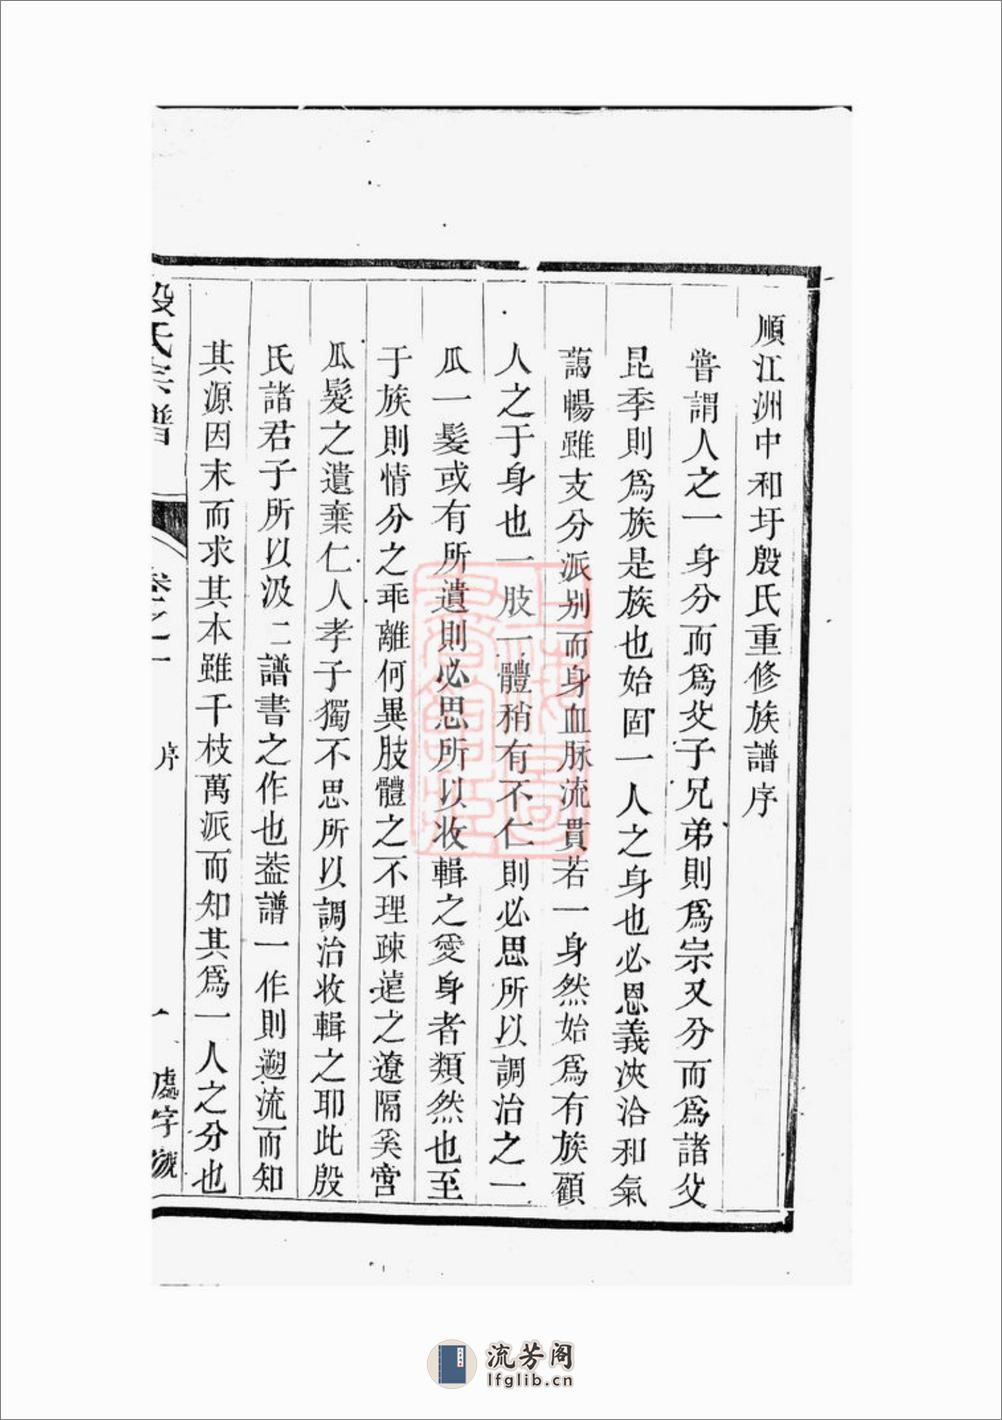 順江洲中和圩殷氏重修族譜序
嘗謂人之一身分而爲父子兄弟則爲宗又分而爲諸父
昆季則爲族是族也始固一人之身也必恩義浹洽和氣
藹暢雖支分派别而身血脉流貫若一身然始爲有族顧
人之于身也一肢一體稍有不仁則必思所以調治之一
瓜一髮或有所遺則必思所以收輯之愛身者類然也至
于族則情分之乖離何異肢體之不理疎薳之遼隔奚啻
瓜髮之遺棄仁人孝子獨不思所以調治收輯之耶此殷
氏諸君子所以汲二譜書之作也葢譜一作則遡流而知
其源因末而求其本雖千枝萬派而知其爲一人之分也
殷氏宗譜
卷之一
序
一
處字號
上海圖書館藏
流芳阁
lfglib.cn